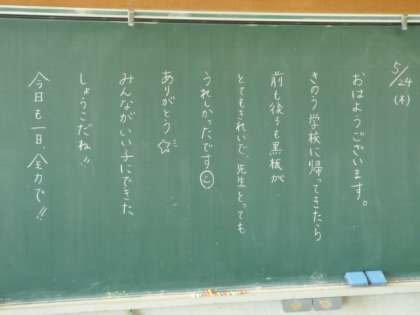 5/24
(木)
おはようございます。
きのう学校に帰ってきたら
前も後ろも黒板が
とてもきれいで、先生とっても
うれしかったです☺
ありがとう☆
みんながいい子にできた
しょうこだね!!
今日も一日、全力で!!